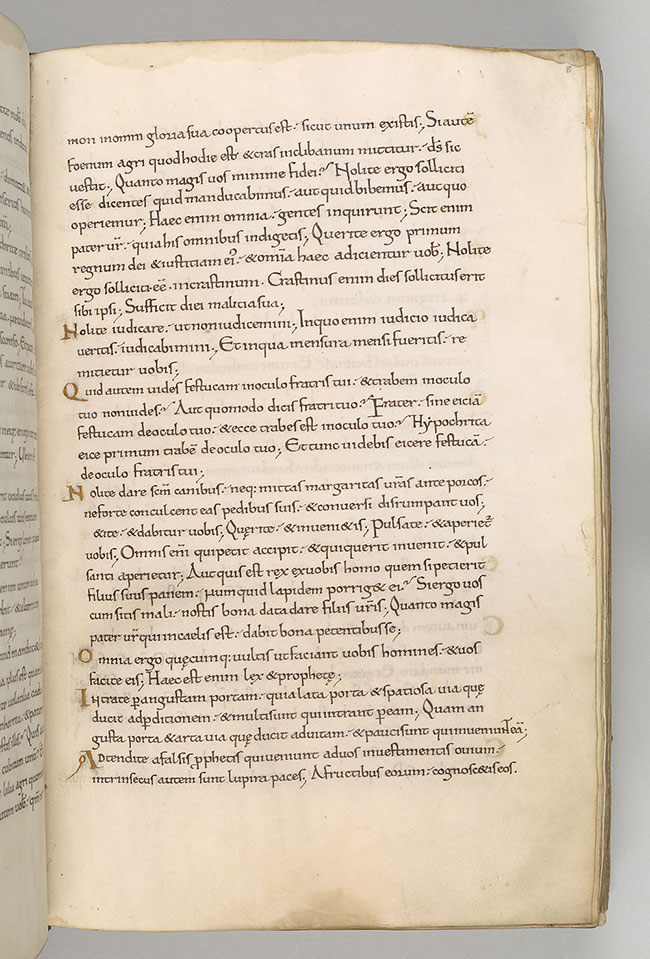 8
mon inomni gloria sua coopertus est · sicut unum existis; Si autē
foenum agri quod hodie est & cras inclibanum mittitur · ds̄ sic
uestit; Quanto magis uos minime fidei? Nolite ergo solliciti
esse dicentes quid manducabimus · aut quid bibemus · aut quo
operiemur; Haec enim omnia · gentes inquirunt; Scit enim
pater ur̄ · quia his omnibus indigetis; Querite ergo primum
regnum dei & iustitiam ei' · & om̄ia haec adicientur uob̄; Nolite
ergo solliciti · eē · in crastinum · Crastinus enim dies sollicitus erit
sibi ipsi; Sufficit diei malicia sua;
Nolite iudicare · ut non iudicemini; Inquo enim iudicio iudica
ueritis · iudicabimini; Et inqua mensura mensi fueritis · re
mitietur uobis;
Quid autem uides festucam inoculo fratris tui · & trabem inoculo
tuo non uides? Aut quomodo dicis fratri tuo? Frater · sine eiciā
festucam de oculo tuo · & ecce trabes est inoculo tuo? Hypochrita
eice primum trabē de oculo tuo; Et tunc uidebis eicere festucā ·
de oculo fratris tui;
Nolite dare scm̄ canibus · neq: mittas margaritas ur̄as ante porcos ·
ne forte conculcent eas pedibus suis · & conuersi disrumpant uos;
&ite · & dabitur uobis; Quęrite · & inueni&is; Pulsate · & aperiet̄
uobis; Omnis eni qui petit accipit · & qui querit inuenit · & pul
santi aperietur; Aut quis est rex ex uobis homo quem si petierit
filius suus panem · numquid lapidem porrig& ei? Si ergo uos
cum sitis mali · nostis bona data dare filiis ur̄is; Quanto magis
pater ur̄ qui in caelis est · dabit bona petentibus se;
Omnia ergo quęcumq: uultis ut faciant uobis homines · & uos
facite eis; Haec est enim lex & prophetę;
Intrate p̄ angustam portam · quia lata porta & spatiosa uia quę
ducit ad p̄ditionem · & multi sunt qui intrant p̄ eam; Quam an
gusta porta & arta uia quę ducit aduitam · & pauci sunt qui inueniunt eā;
Adtendite a falsis p̄phetis qui ueniunt aduos inuestimentis ouium ·
intrinsecus autem sunt lupi rapaces; A fructibus eorum · cognosc&is eos.